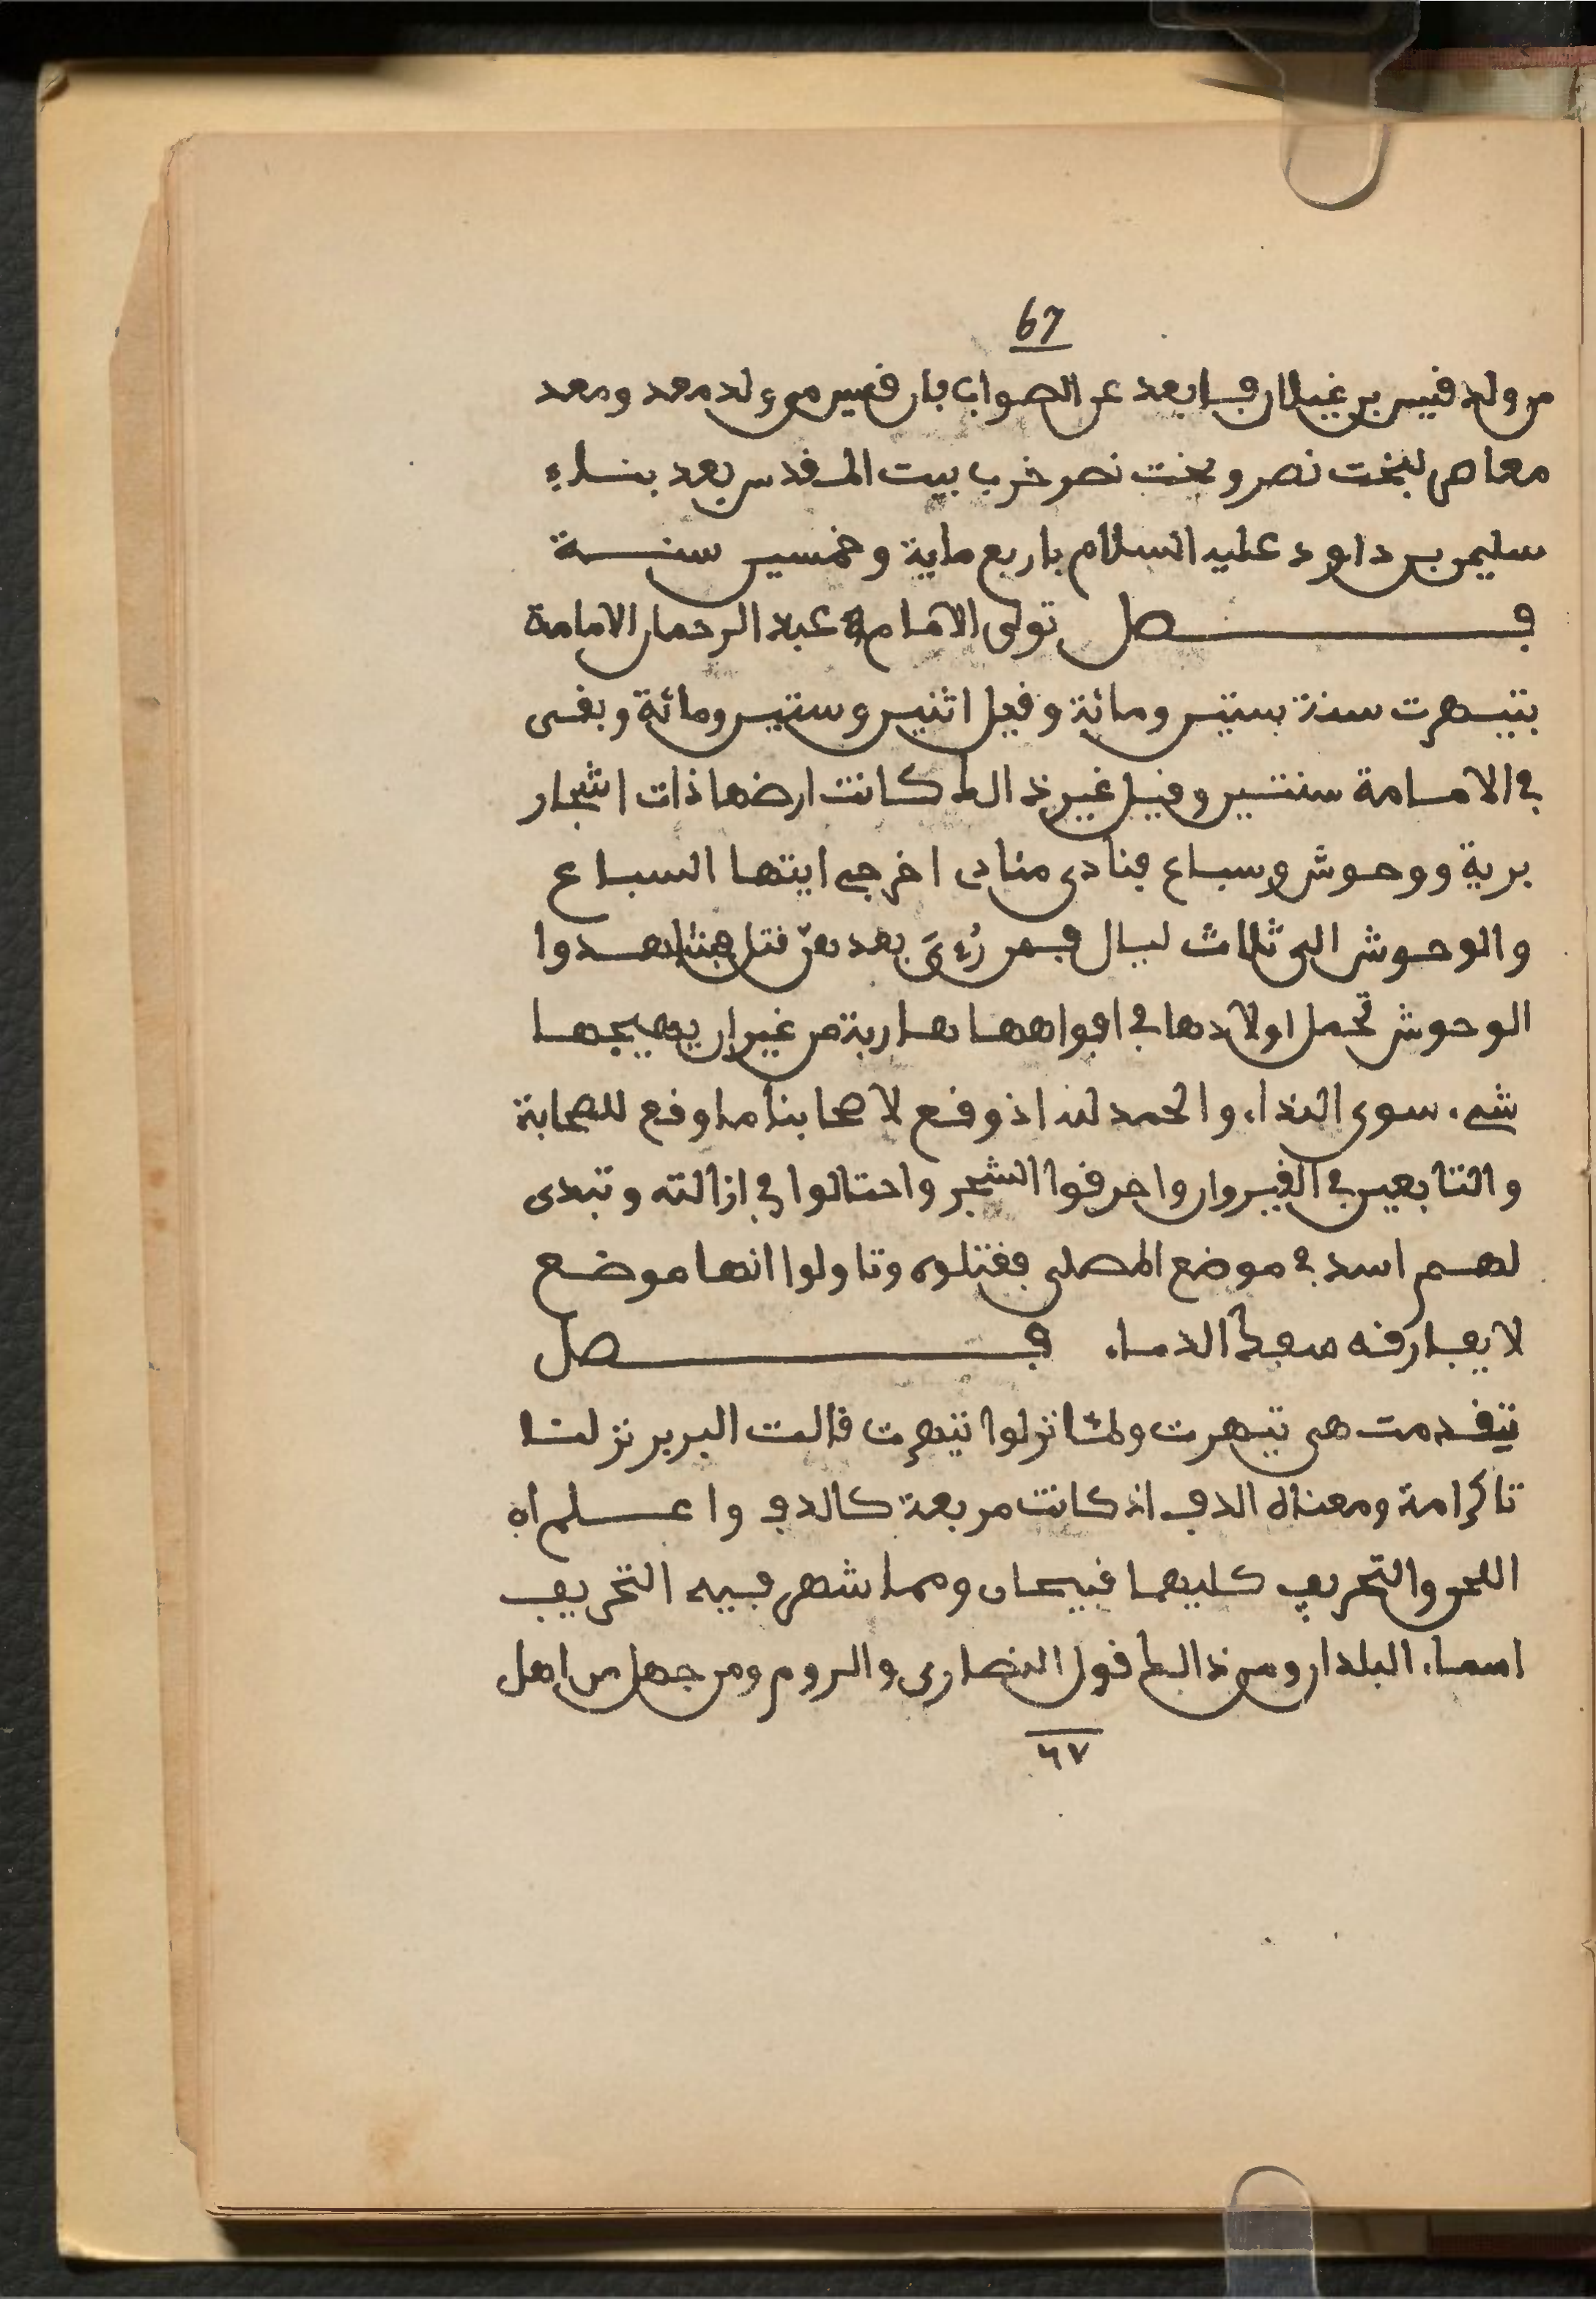 67
من ولد قيس بن غيلان فـابعد عن الصواب بان قيس من ولد معد ومعد
معاص لبخت نصر وبخت نصر خرب بيت المـقدس بعد بنـاء
سليمن بـن داود عليه السلام باربع ماية وخمسين سنـــة
فــــــــصل تولى الامـام عبد الرحمان الامامة
بتيـهرت سنة ستين ومائة وقيل اثنين وستين ومائة وبقـى
في الامـامة سنتـين وقيـل غير ذالك كـانت ارضها ذات اشجار
برية ووحـوش وسبـاع فنادى منادى اخرجى ايتها السبـاع
والوحـوش الى ثلاث ليـال فمن رُءىَ بعدهنّ قتل هنا
الوحوش تحمل اولادها في افواههـا هـاربة من غير ان يهيجهـا
شىء سوى النداء والحمد لله اذ وقع لاصحابنا مـا وقع للصحابة
والتابعين في القيـروان واحرقوا الشجر واحتالوا في ازالته وتبدى
لهـم اسد في موضع المصلى فقتلوه وتاولوا انها موضـع
لا يفـارقه سفك الدمـاء فــــــــصل
تيقـدمت هى تيـهرت ولمّا نزلوا تيهرت قالت البربر نزلنـا
تاكرامة ومعناه الدف اذ كانت مربعة كـالدف واعـــلم ان
اللحن والتحريف كـليهما قبيحـان وممـا شهر فيـه التحريف
اسمـاء البلدان ومن ذالك قول النصارى والروم ومن جهل من اهل
٦٧